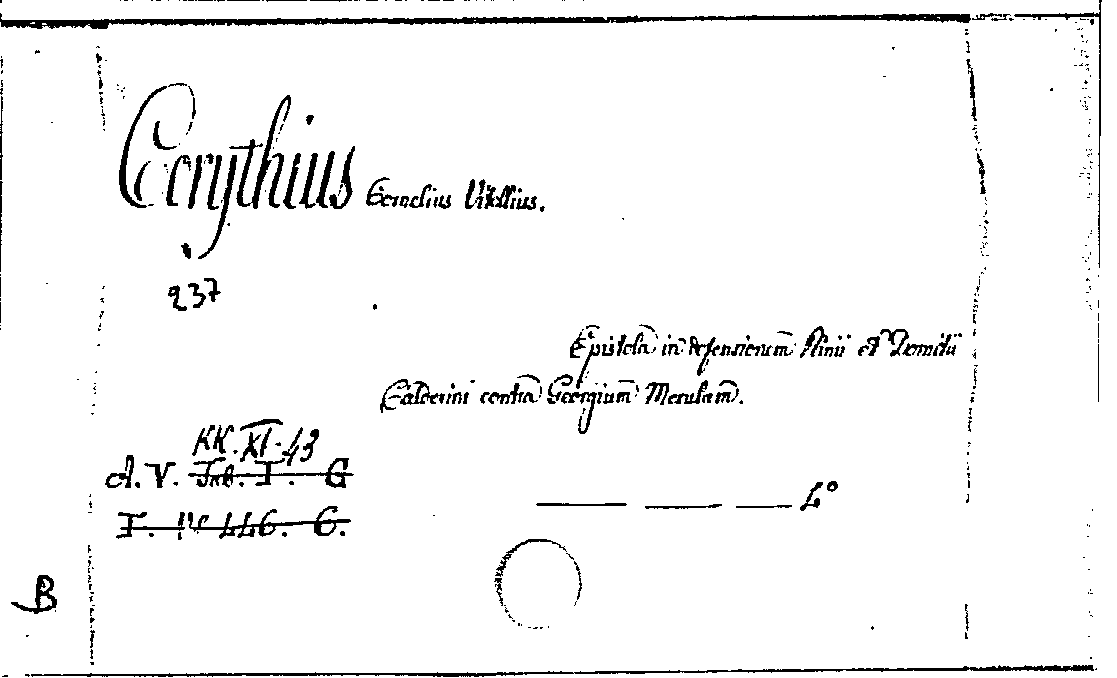 Corythius Cornelius Vitellius.
237
Epistola in defensionem Plinii et Domitii
Calderini contra Georgium Merulam.
KK. XI. 43
A. V. Tab. I. G
I. IV 446. C.
4°
B